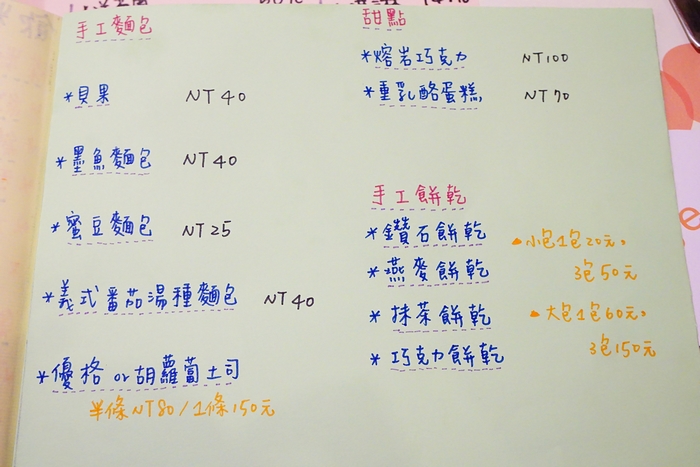 手工麵包
*貝果 NT40
*墨魚麵包 NT40
*蜜豆麵包 NT25
*義式番茄湯種麵包 NT40
*優格 or 胡蘿蔔土司
半條NT80/1條150元
甜點
*熔岩巧克力 NT100
*重乳酪蛋糕 NT70
手工餅乾
*鑽石餅乾
*燕麥餅乾
*抹茶餅乾
*巧克力餅乾
小包1包20元,
3包50元
大包1包60元,
3包150元